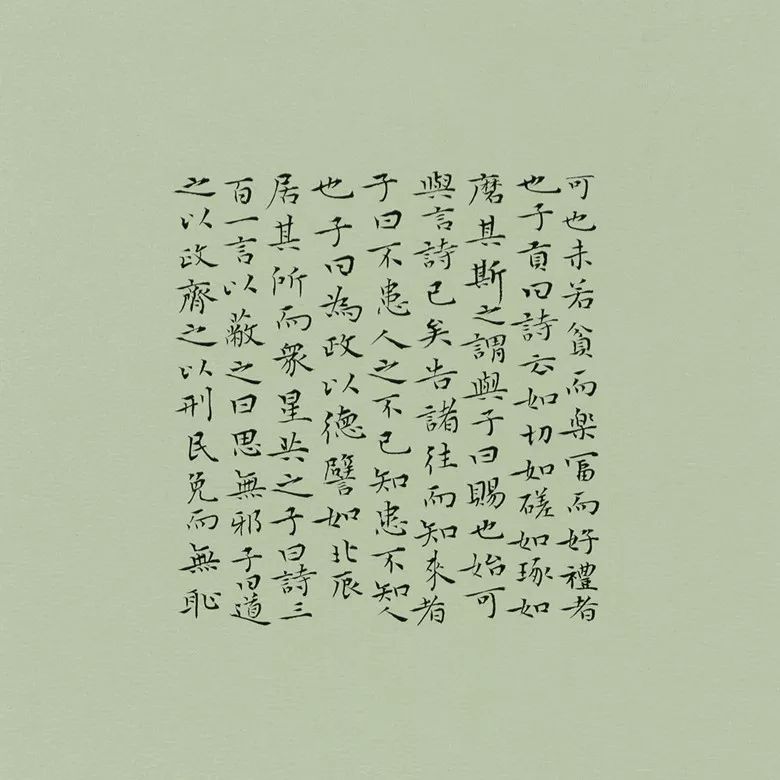 可也未若貧而樂冨而好禮者
也子貢曰詩云如切如磋如琢如
磨其斯之謂與子曰賜也始可
與言詩已矣告諸往而知來者
子曰不患人之不己知患不知人
也子曰為政以德譬如北辰
居其所而衆星共之子曰詩三
百一言以蔽之曰思無邪子曰道
之以政齊之以刑民免而無恥